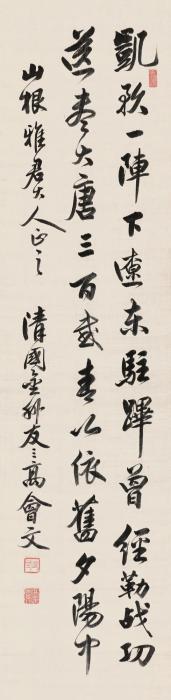 凱歌一陣下遼东駐蹕曾經勒战功
送盡大唐三百歲青山依舊夕陽中
山根雅君大人正之
清國金州友三高會文